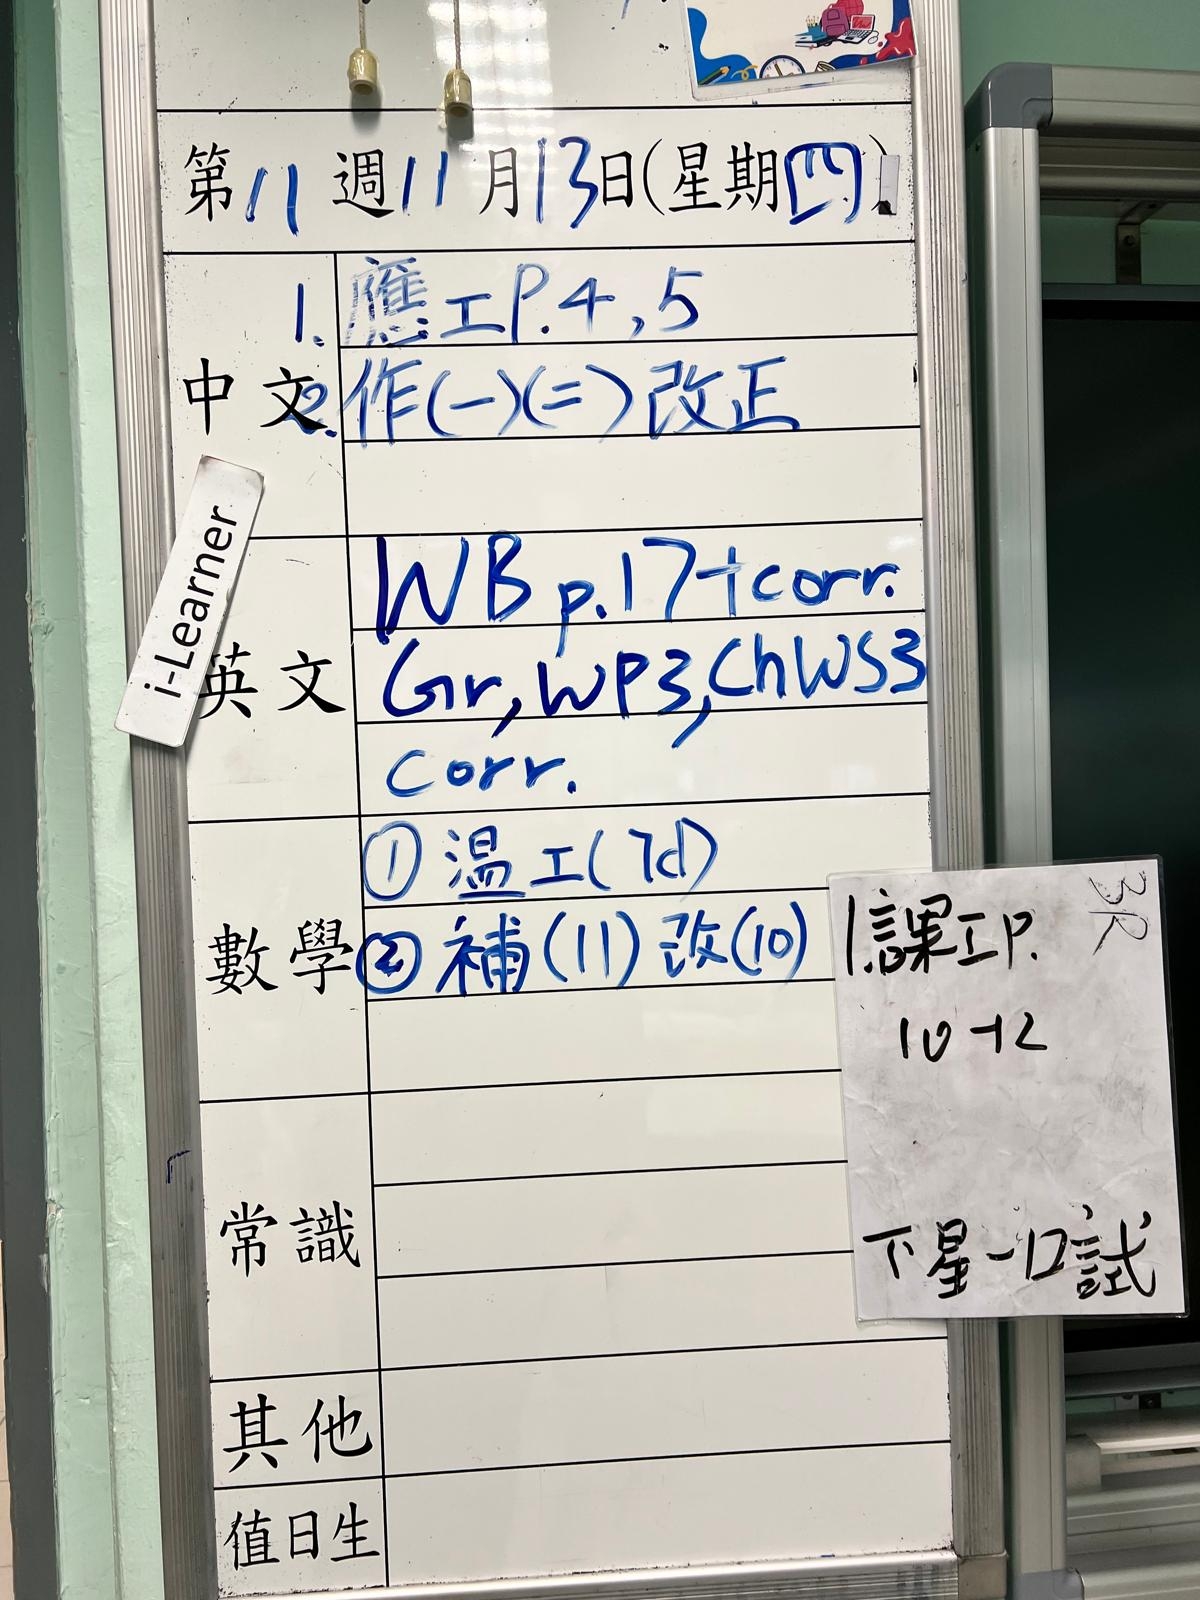 第11週11月13日(星期四)
1. 應工P.4,5
中文
2. 作(一)(二)改正
i-Learner
WB p.17+corr.
英文
Gr, WP3, ChWS3
corr.
① 溫工(7d)
數學
② 補(11) 改(10)
常識
其他
值日生
3R
1.課工P.
10-12
下星一口試